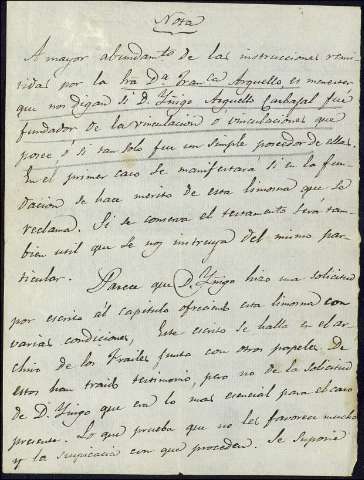 Nota
A mayor abundamto. de las instrucciones remi-
tidas por la Sra Da Franca Arguello es menester
que nos digan si D. Yñigo Arguello Carbajal fué
fundador de la vinculacion o vinculaciones que
posee ó si tan solo fue un simple poseedor de ellas.
En el primer caso se manifestará si en la fun-
dacion se hace merito de esta limosna que se
reclama. Si se conserva el testamento será tam-
bien util que se nos instruya del mismo par-
ticular.
Parece que D. Yñigo hizo una solicitud
por escrito al capitulo ofreciendo esta limosna con
varias condiciones, Este escrito se halla en el ar-
chivo de los Frailes junto con otros papeles. De
estos han traido testimonio, pero no de la solicitud
de D. Yñigo que era lo mas esencial para el caso
presente. Lo que prueba que no les favorece mucho
y la suspicacia con que proceden. Se supone